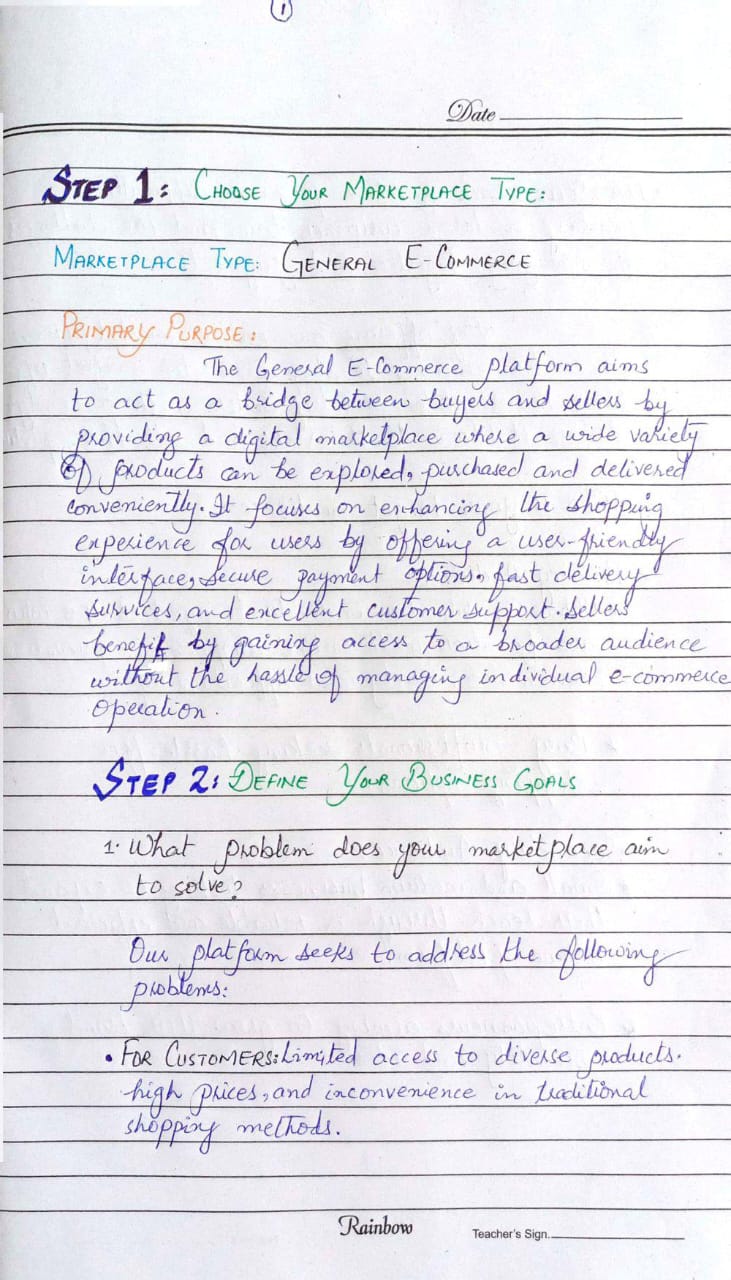 1
Date
STEP 1: CHOOSE YOUR MARKETPLACE TYPE:
MARKETPLACE TYPE: GENERAL E-COMMERCE
PRIMARY PURPOSE:
The General E-Commerce platform aims
to act as a bridge between buyers and sellers by
providing a digital marketplace where a wide variety
Of products can be explored, purchased and delivered
conveniently. It focuses on enhancing the shopping
experience for users by offering a user-friendly
interface, secure payment options, fast delivery
survices, and excellent customer support. Sellers
benefit by gaining access to a broader audience
without the hassle of managing individual e-commerce
operation.
STEP 2: DEFINE YOUR BUSINESS GOALS
1. What problem does your marketplace aim
to solve?
Our platform seeks to address the following
problems:
• FOR CUSTOMERS: Limited access to diverse products.
high prices, and inconvenience in traditional
shopping methods.
Rainbow Teacher's Sign.